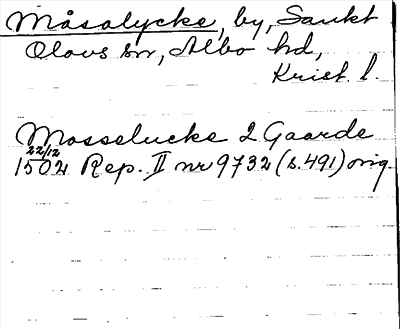 Måsalycke, by, Sankt
Olovs sn, Albo hd,
Krist. l.
Mosselucke 2 Gaarde
22/12
1502 Rep. II nr 9732 (s. 491) orig.